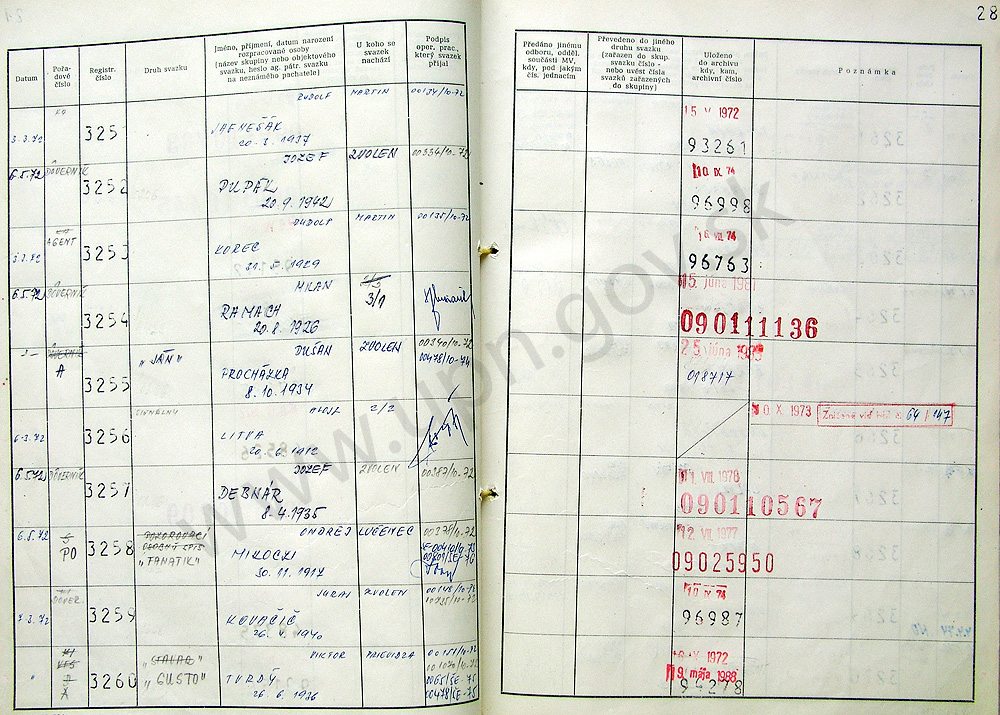 28
Datum
Pořa-
dové
číslo
Registr.
číslo
Druh svazku
Jméno, příjmení, datum narození
rozpracované osoby
(název skupiny nebo objektového
svazku, heslo ag. pátr. svazku
na neznámého pachatele)
U koho se
svazek
nachází
Podpis
oper. prac.,
který svazek
přijal
Předáno jinému
odboru, odděl.
součásti MV,
kdy, pod jakým
čís. jednacím
Převedeno do jiného
druhu svazku
(zařazen do skup.
svazku číslo -
nebo uvést čísla
svazků zařazených
do skupiny)
Uloženo
do archivu
kdy, kam,
archivní číslo
Poznámka
3.3.72
3251
RUDOLF
20.3.1937
MARTIN
00134/10-72
15 V 1972
93261
6.5.72
DÔVERNÍK
3252
JOZEF
PUPÁK
20.9.1942
ZVOLEN
00334/10-72
10 IX 74
96998
3.3.72
AGENT
3253
RUDOLF
KOREC
31.5.1929
MARTIN
00135/10-72
16 VII 74
96763
6.5.72
DÔVERNÍK
3254
MILAN
RAMACH
20.8.1926
3/1
15. júna 1981
090111136
A
3255
„JÁN"
DUŠAN
PROCHÁZKA
8.10.1934
ZVOLEN
00340/10-72
00478/10-74
018717
6.3.72
3256
SIGNÁLNY
LITVA
20.6.1912
2/2
10 X 1973
64/147
6.5.72
DÔVERNÍK
3257
JOZEF
DEBNÁR
8.4.1935
ZVOLEN
00387/10-72
1. VIII. 1978
090110567
6.5.72
PO
3258
„FANATIK"
ONDREJ
MIKOCKI
30.11.1917
LUČENEC
00378/10-72
12 VII. 1977
09025950
7.3.72
DÔVER.
3259
JURAJ
KOVAČIČ
26.4.1940
ZVOLEN
00148/10-72
10 IX 74
96987
3260
„GUSTO"
VIKTOR
TVRDÝ
26.6.1936
PRIEVIDZA
00151/10-72
00478/ŠE-75
1972
9. mája 1988
94278
www.upn.gov.sk